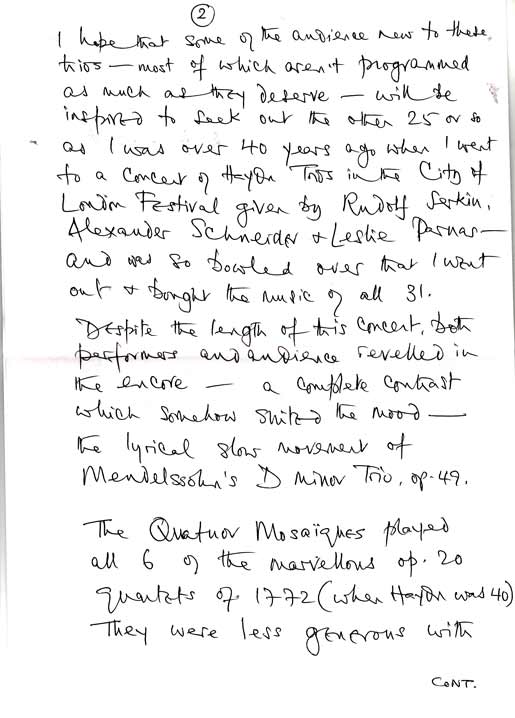 2
I hope that some of the audience new to these
trios — most of which aren't programmed
as much as they deserve — will be
inspired to seek out the other 25 or so
as I was over 40 years ago when I went
to a concert of Haydn Trios in the City of
London Festival given by Rudolf Serkin,
Alexander Schneider & Leslie Parnas —
and was so bowled over that I went
out & bought the music of all 31.
Despite the length of this concert, both
performers and audience revelled in
the encore — a complete contrast
which somehow suited the mood —
the lyrical slow movement of
Mendelssohn's D minor Trio, op. 49.
The Quatuor Mosaïques played
all 6 of the marvellous op. 20
quartets of 1772 (when Haydn was 40)
They were less generous with
CONT.